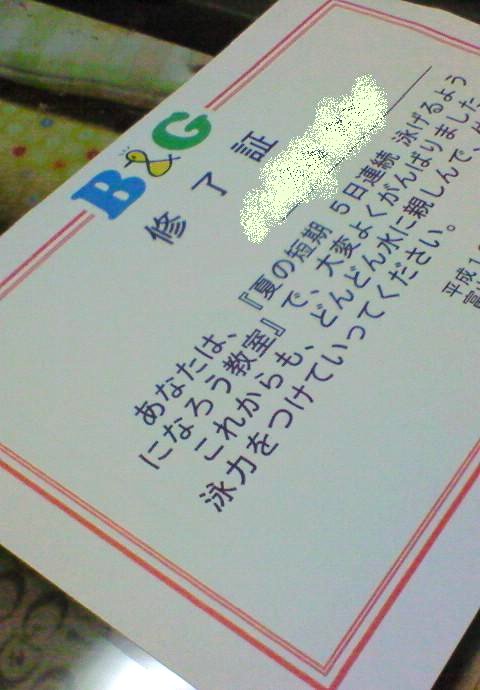 B&G
修了証
あなたは、『夏の短期 5日連続 泳げるよう
になろう教室』で、大変よくがんばりました
これからも、どんどん水に親しんで、
泳力をつけていってください。
平成1